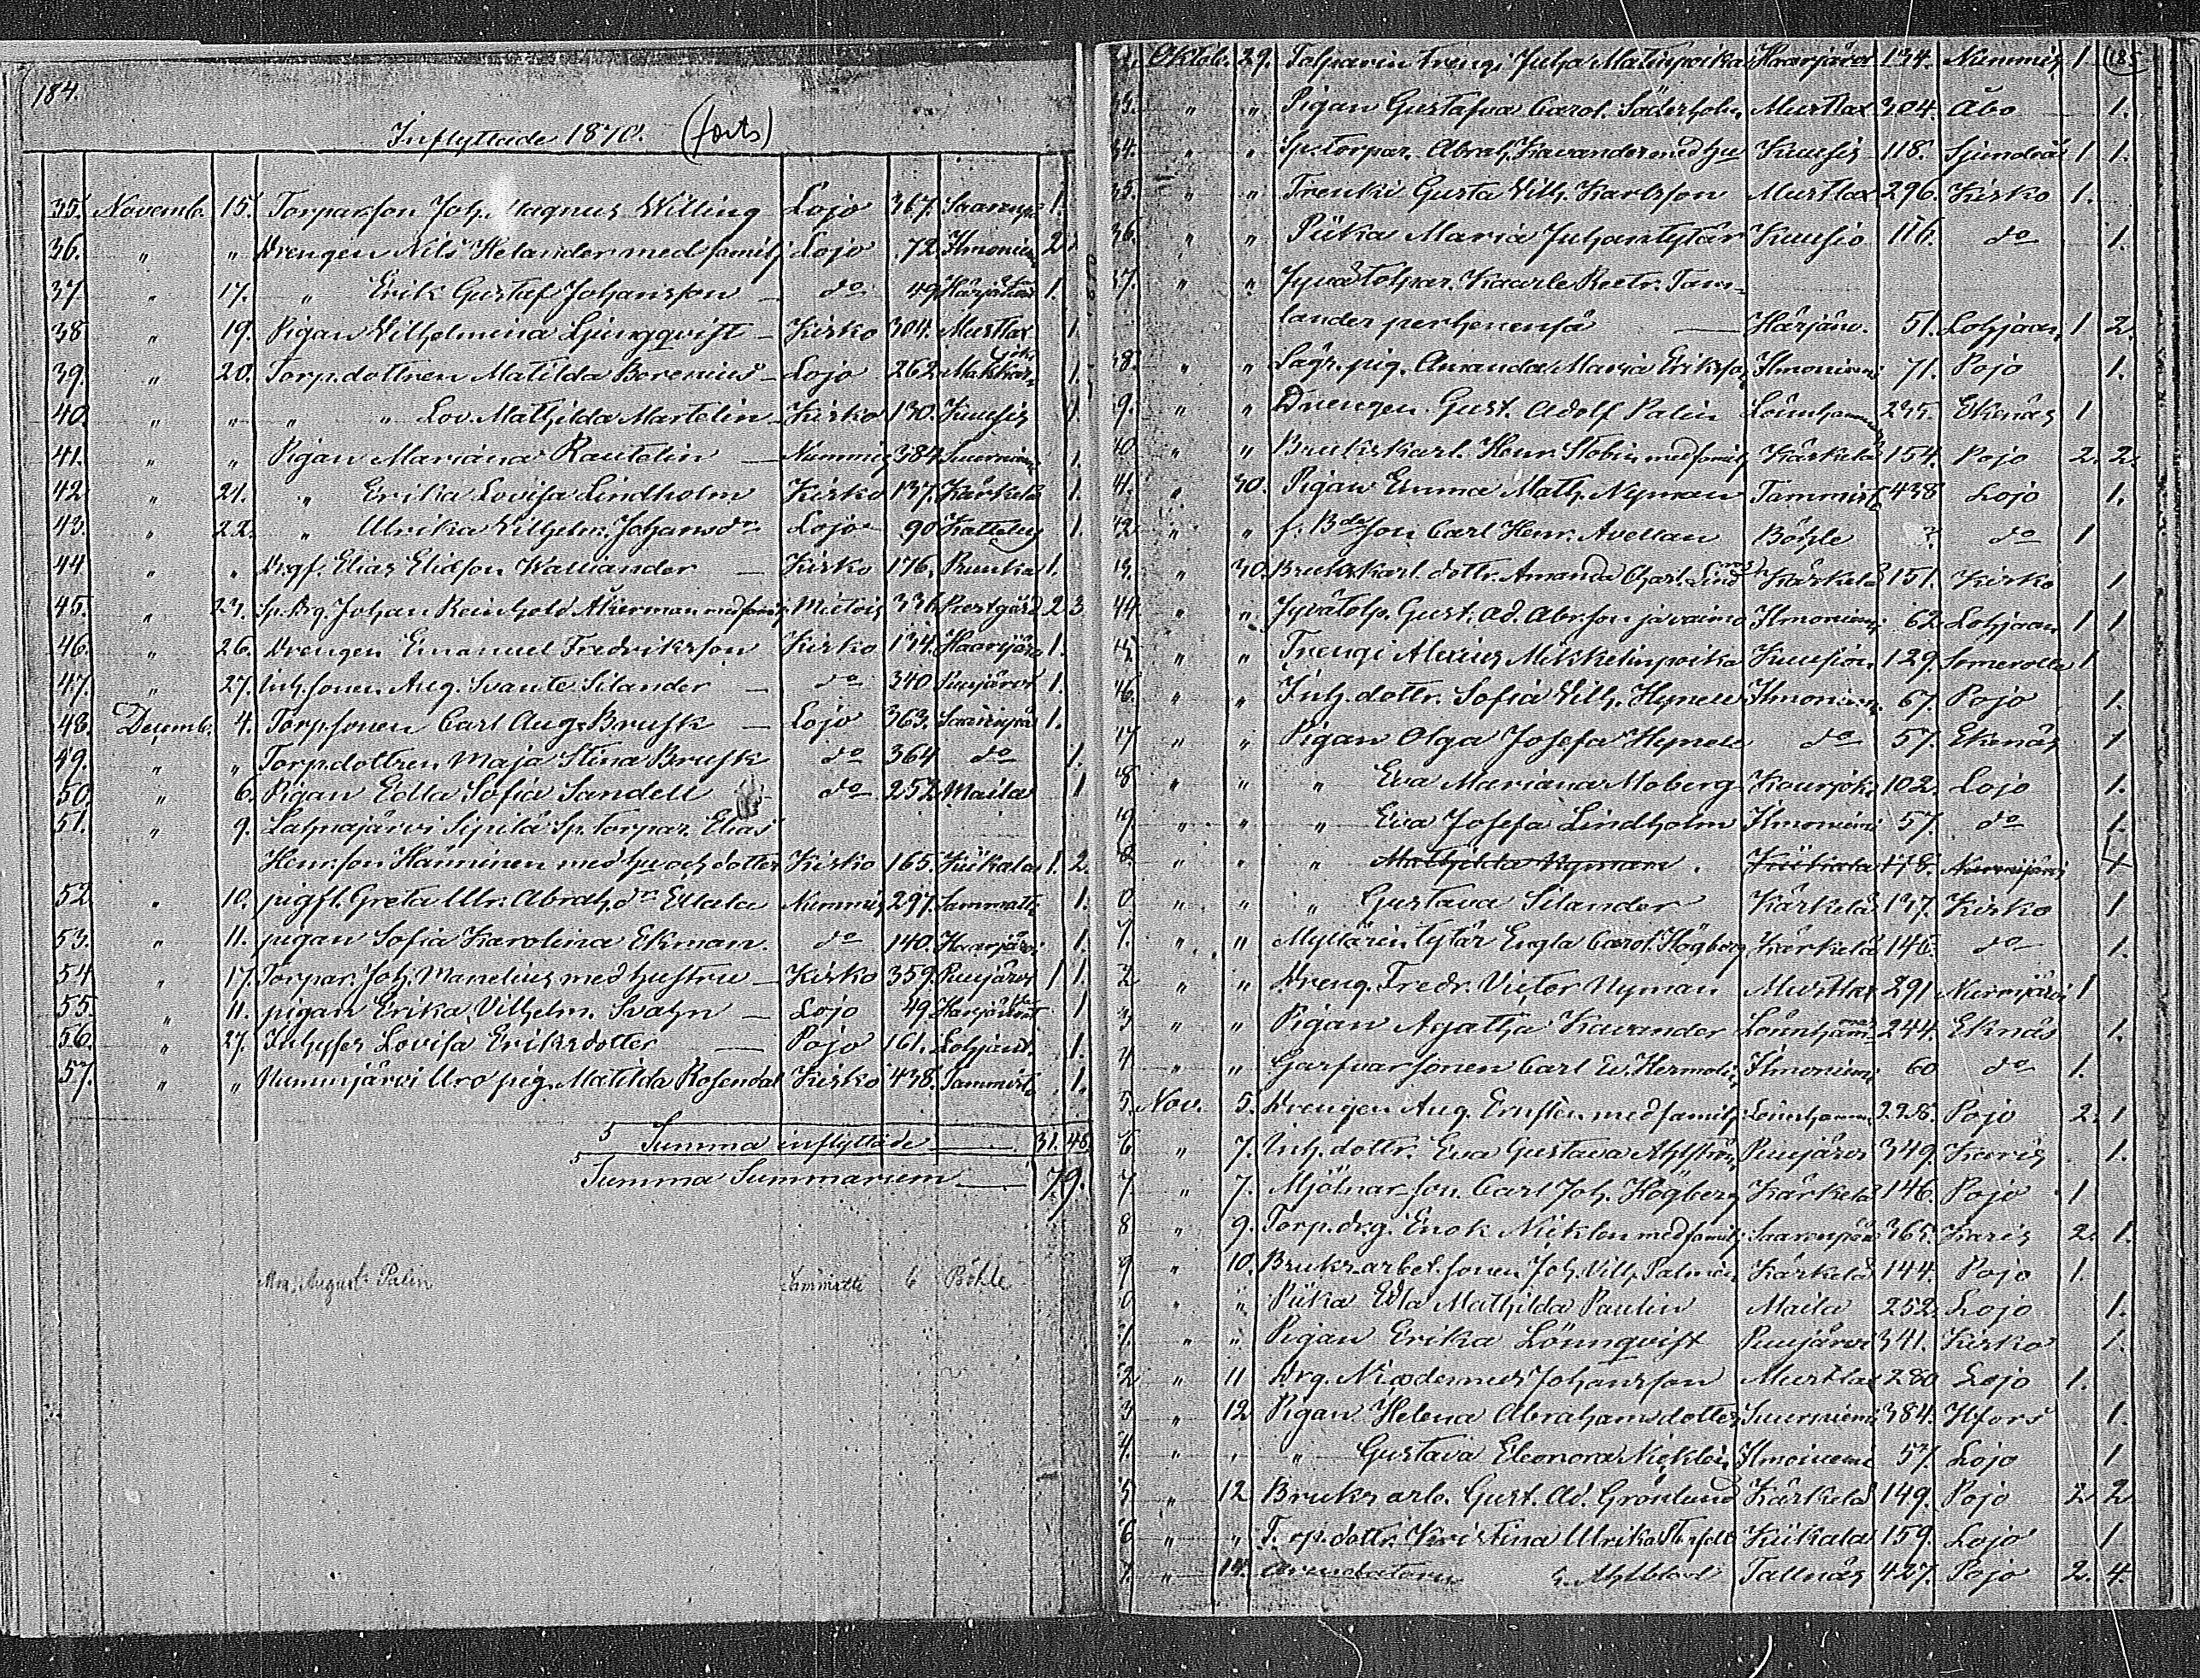 184.
Inflyttade 1870. (forts)
35. Novemb. 15. Torparson Joh. Magnus Willing Lojo 367. Saarenpä 1.
36. " " Drengen Nils Helander med familj Lojo 72. Ilmoniemi 2 1.
37. " 17. " Erik Gustaf Johansson — do 49. Härjäluod 1.
38. " 19. Pigan Wilhelmina Ljungqvist — Kisko 304. Mustlax 1.
39. " 20. Torp.dottren Matilda Borenius — Lojo 262. 1.
40. " " " " Lov. Mathilda Martelin — Kisko 130. Kuusis 1.
41. " " Pigan Mariana Rautelin — Nummis 384. Suurniemi 1.
42. " 21. " Erika Lovisa Lindholm Kisko 137. Kärkelä 1.
43. " 22. " Ulrika Vilhelm. Johansdr Lojo 90 1.
44. " " Drgf. Elias Eliasson Walliander — Kisko 176. 1.
45. " 23. Sp. Drg. Johan Reinhold Åkerman med familj Mietois 336. Prestgård 2 3
46. " 26. Drengen Emanuel Fredriksson Kisko 134. Haarijärv 1.
47. " 27. Inh.sonen Aug. Svante Silander — do 340. Puujärvi 1.
48. Decemb. 4. Torpsonen Carl Aug. Brusk — Lojo 363. Saarenpää 1.
49. " " Torp.dottren Maja Stina Brusk do 364 do 1.
50. " 6. Pigan Edla Sofia Sandell do 252 Maila 1
51. " 9. Lahnajärvi Sipilä Sp. torpar. Elias
Henrsson Hänninen med hu och dotter Kisko 165. Kiikala 1. 2.
52. " 10. pigfl. Greta Ulr. Abrah.dr Ellala Nummis 297. Sammatti 1.
53. " 11. pigan Sofia Karolina Ekman. do 140. Haarjärvi 1.
54. " 17. Torpar. Joh. Manelius med hustru — Kisko 359. Puujärvi 1 1.
55. " 11. pigan Erika Vilhelm. Svahn — Lojo 49 1
56. " 27. Inhyses Lovisa Eriksdotter — Pojo 161. 1.
57. " " Nummjärvi Uro pig. Matilda Rosendal Kisko 438. Tammist 1.
Summa inflyttade — 31. 48.
Summa Summarum — 79.
August Palin Sammatti 6 Böhle
185
Oktob. 29. Tolparin trengi Juha Matinpoika Haarjärvi 134. Nummis 1
33. " " Pigan Gustafva Carol. Söderholm Mustlax 304. Åbo 1.
34. " " Sp. torpar. Abrah. Kavander med hu Kuusis 118. Sjundeå 1 1.
35. " " Trenki Gusta Vilh. Karlsson Mustlax 296. Kisko 1.
36. " " Piika Maria Juhantytär Kuusio 116. do 1.
37. " " Jyvätolpar. Kaarle Reetr. Tam-
lander perheenensä — Härjänv. 51. Lohjaan 1 2.
38. " " Sägs. pig. Amanda Maria Eriksson Ilmoniemi 71. Pojo 1.
9. " " Drengen Gust. Adolf Palin Lönnhammar 235. Ekenäs 1
40 " " Brukskarl. Henr. Stobin med familj Kärkelä 154. Pojo 2. 2.
41. " 30. Pigan Emma Math. Nyman Tammist 438 Lojo 1.
42 " " f. Bdesson Carl Henr. Avellan Böhle ? do 1
43. " 30. Brukskarl. dottr. Amanda Charl. Lindroos Kärkelä 151. Kisko 1
44 " " Jyvätolp. Gust. Ad. Abr.son ja vaimo Ilmoniemi 62 Lohjaan 1 1
45. " " Trengi Alexius Mikkelinpoika Kuusion 129. Somerolle 1
46. " " Inh. dottr. Sofia Vilh. Hynell Ilmoniemi 67. Pojo 1.
47 " " Pigan Olga Josefa Hynell do 57. Ekenäs 1
48 " " " Eva Mariana Moberg Kourjoki 102. Lojo 1.
49 " " " Eva Josefa Lindholm Ilmoniemi 57. do 1.
" " " Mathilda Nyman. 178. Nurmijärvi 1
0. " " " Gustava Silander Kärkelä 137. Kisko 1
1. " " Myllärin tytär Engla Carol. Högberg Kärkelä 146. do 1.
2 " " Dreng. Fredr. Victor Nyman Mustlax 291 Nurmijärvi 1
3 " " Pigan Agatha Kavander Lönnhammar 244. Eknäs 1.
4 " " Garfvarsonen Carl Ed. Hermolin Ilmoniemi 60 do 1.
5. Nov. 5. Drengen Aug. Ernsten med familj Lönnhammar 238. Pojo 2. 1
6 " 7. Inh. dottr. Eva Gustava Ahlström Puujärvi 349. Karis 1.
7 " 7. Mjölnarson. Carl Joh. Högberg Kärkelä 146. Pojo 1
8 " 9. Torp.drg. Enok Nicklen med familj Saarenpää 365. Karis 2. 1.
9 " 10. Bruksarbet.sonen Joh. Vilh. Palmén Kärkelä 144. Pojo 1.
0 " " Piika Eva Mathilda Paulin Maila 252. Lojo 1.
1. " " Pigan Erika Lönnqvist Puujärvi 341. Kisko 1.
2 " 11 Drg. Nicodemus Johansson Mustlax 280 Lojo 1.
3 " 12 Pigan Helena Abrahamsdotter Suurniemi 384. Hfors 1.
4. " " " Gustava Eleonora Nicklén Ilmoniemi 57. Lojo 1
5 " 12 Bruksarb. Gust. Ad. Grönlund Kärkelä 149. Pojo 2 2
6 " " Torp. dottr. Kristina Ulrika Kiikala 159. Lojo 1
7. " 14. Arrendatorn Ahlblad Tallnäs 427. Pojo 2. 4.